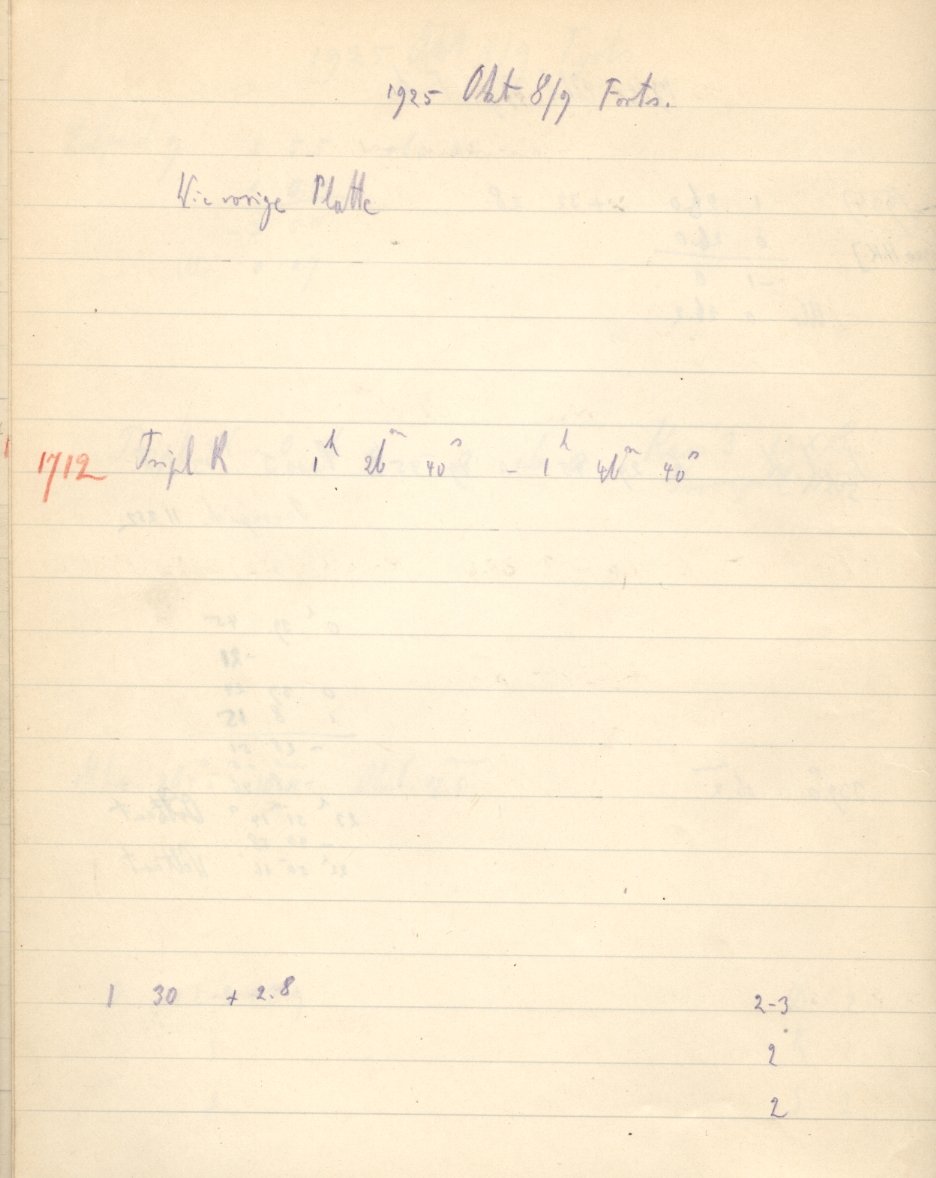 1925 Okt 8/9 Forts.
Wie vorige Platte
1712 Tripl R 1h 26m 40s - 1h 46m 40s
1 30 + 2.8 2-3
2
2